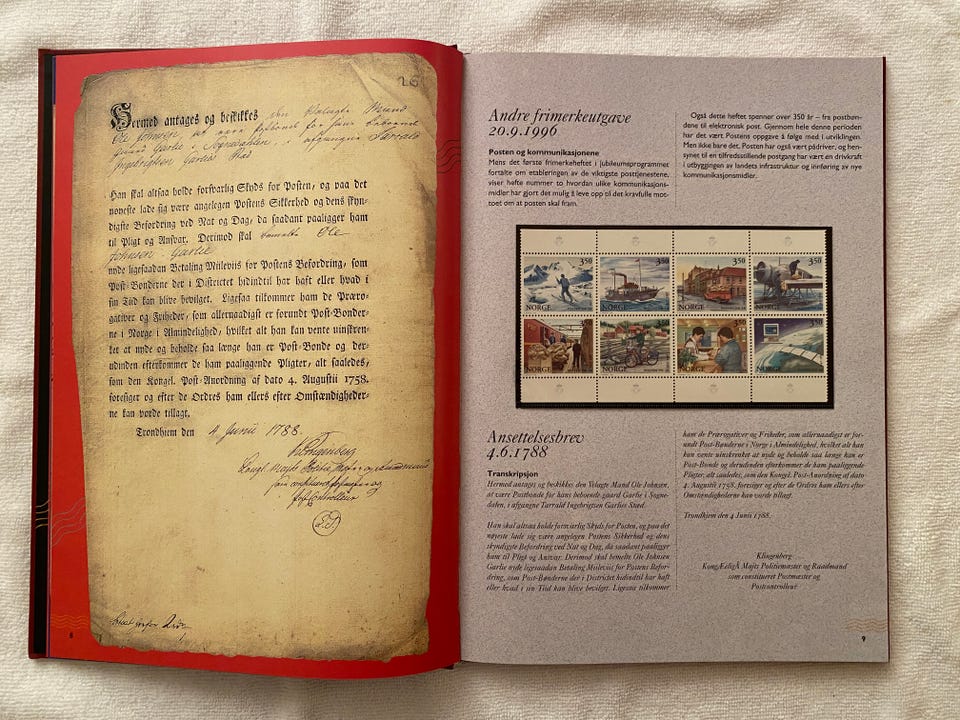 26
Hermed antages og beskikkes den Velagte Mand
Ole Johnsen at være Postbonde for hans beboende
Gaard Garlie i Sognedahlen, i afgangne Tarrald
Ingebrigtsen Garlies Stæd
Han skal altsaa holde forsvarlig Skyds for Posten, og paa det
nøyeste lade sig være angelegen Postens Sikkerhed og dens skyn-
digste Befordring ved Nat og Dag, da saadant paaligger ham
til Pligt og Ansvar. Derimod skal bemelte Ole
Johnsen Garlie
nyde ligesaadan Betaling Miileviis for Postens Befordring, som
Post-Bønderne der i Districtet hidindtil har haft eller hvad i
sin Tiid kan blive bevilget. Ligesaa tilkommer ham de Præro-
gativer og Friheder, som allernaadigst er forundt Post-Bønder-
ne i Norge i Almindelighed, hvilket alt han kan vente uinskren-
ket at nyde og beholde saa længe han er Post-Bonde og der-
udinden efterkommer de ham paaliggende Pligter, alt saaledes,
som den Kongel. Post-Anordning af dato 4. Augustii 1758.
foresiger og efter de Ordres ham ellers efter Omstændigheder-
ne kan vorde tillagt.
Trondhiem den 4 Junii 1788.
Klingenberg
8
Andre frimerkeutgave
20.9.1996
Posten og kommunikasjonene
Mens det første frimerkeheftet i jubileumsprogrammet
fortalte om etableringen av de viktigste posttjenestene,
viser hefte nummer to hvordan ulike kommunikasjons-
midler har gjort det mulig å leve opp til det kravfulle mot-
toet om at posten skal fram.
Også dette heftet spenner over 350 år – fra postbøn-
dene til elektronisk post. Gjennom hele denne perioden
har det vært Postens oppgave å følge med i utviklingen.
Men ikke bare det. Posten har også vært pådriver, og hen-
synet til en tilfredsstillende postgang har vært en drivkraft
i utbyggingen av landets infrastruktur og innføring av nye
kommunikasjonsmidler.
3.50
NORGE
3.50
NORGE
3.50
NORGE
3.50
NORGE
3.50
NORGE
3.50
NORGE
3.50
NORGE
3.50
NORGE
Ansettelsesbrev
4.6.1788
Transkripsjon
Hermed antages og beskikkes den Velagte Mand Ole Johnsen,
at være Postbonde for hans beboende gaard Garlie i Sogne-
dalen, i afgangne Tarrald Ingebrigtsen Garlies Stæd.
Han skal altsaa holde forsvarlig Skyds for Posten, og paa det
nøyeste lade sig være angelegen Postens Sikkerhed og dens
skyndigste Befordring ved Nat og Dag, da saadant paaligger
ham til Pligt og Ansvar. Derimod skal bemelte Ole Johnsen
Garlie nyde ligesaadan Betaling Miileviis for Postens Befor-
dring, som Post-Bønderne der i Districtet hidindtil har haft
eller hvad i sin Tiid kan blive bevilget. Ligesaa tilkommer
ham de Prærogativer og Friheder, som allernaadigst er for-
undt Post-Bønderne i Norge i Almindelighed, hvilket alt han
kan vente uinskrenket at nyde og beholde saa længe han er
Post-Bonde og derudinden efterkommer de ham paaliggende
Pligter, alt saaledes, som den Kongel. Post-Anordning af dato
4. Augustii 1758, foresiger og efter de Ordres ham ellers efter
Omstændighederne kan vorde tillagt.
Trondhiem den 4 Junii 1788.
Klingenberg
KongÆligÅ Majts Politiemæster og Raadmand
som constitueret Postmæster og
Postcontrolleur
9